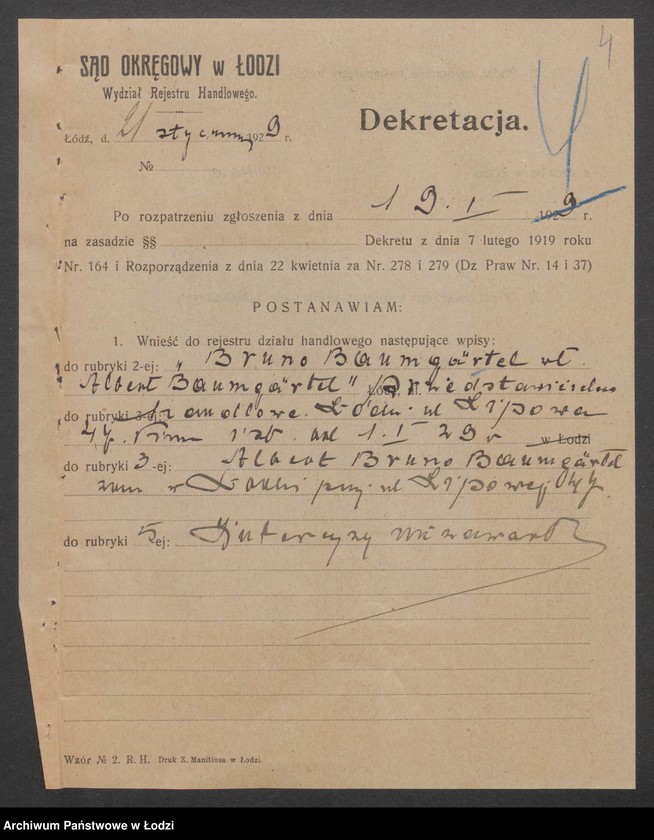 4
SĄD OKRĘGOWY w ŁODZI
Wydział Rejestru Handlowego.
Dekretacja.
Łódź, d. 21 stycznia 1929 r.
№
Po rozpatrzeniu zgłoszenia z dnia 19. I 1929 r.
na zasadzie §§ Dekretu z dnia 7 lutego 1919 roku
Nr. 164 i Rozporządzenia z dnia 22 kwietnia za Nr. 278 i 279 (Dz Praw Nr. 14 i 37)
POSTANAWIAM:
1. Wnieść do rejestru działu handlowego następujące wpisy:
do rubryki 2-ej: „Bruno Baumgärtel wł.
Albert Baumgärtel" Przedstawicielstwo
do rubryki 3-ej: handlowe. Łódź, ul. Lipowa
47. Firma istn. od 1. I 29 r w Łodzi
do rubryki 3-ej: Albert Bruno Baumgärtel
zam w Łodzi przy ul Lipowej 47.
do rubryki 5ej: Intercyzy nie zawarł
Wzór № 2. R. H. Druk Z. Manitiusa w Łodzi.
Archiwum Państwowe w Łodzi